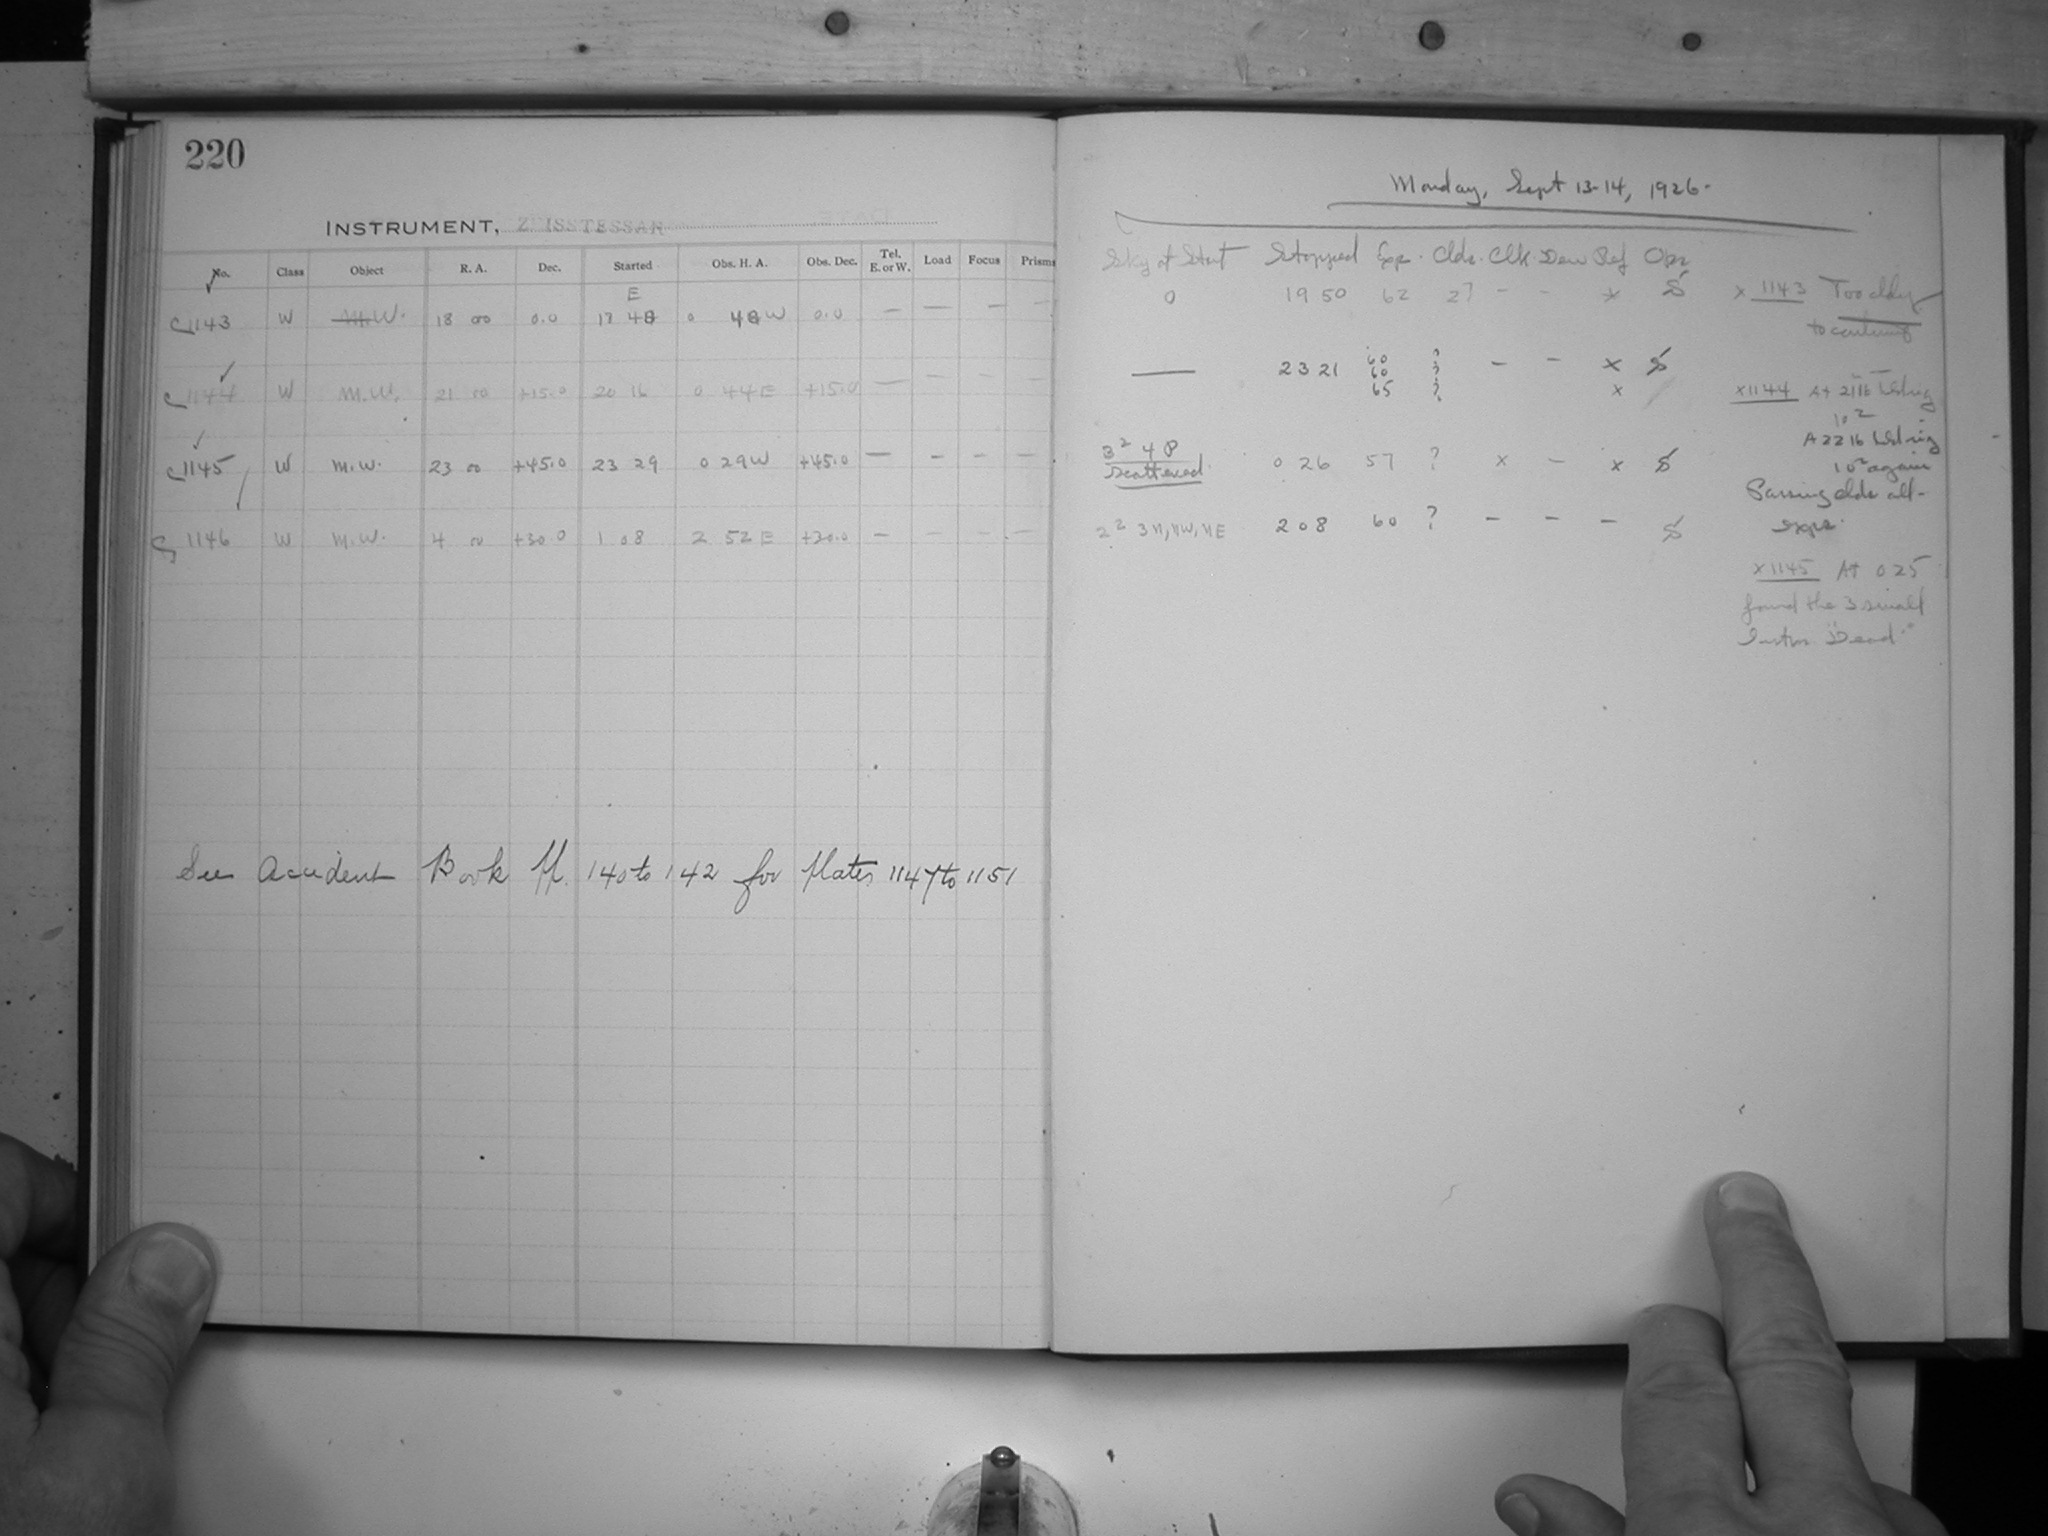 220
INSTRUMENT, ZEISSTESSAR
No. Class Object R. A. Dec. Started Obs. H. A. Obs. Dec. Tel. E. or W. Load Focus Prisms
E
1143 W M.W. 18 00 0.0 0 W 0.0 — — — —
1144 W M.W. 21 00 +15.0 20 16 0 44 E +15.0 — — — —
1145 W M.W. 23 00 +45.0 23 29 0 29 W +45.0 — — — —
1146 W M.W. 4 00 +30.0 1 08 2 52 E +30.0 — — — —
See Accident Book pp. 140 to 142 for plates 1147 to 1151
Monday, Sept 13-14, 1926.
Sky at Start Stopped Exp. Clds. Clk. Dew Ref Obs
0 19 50 62 27 - - x S
— 23 21 60 ? - - x S
60 ?
65 ? x
3² 4 8 scattered 0 26 57 ? x - x S
2² 3 N, NW, NE 2 08 60 ? - - - S
x 1143 Too cldy
to continue
x 1144 At 2116
10²
A 2216
10² again
Passing clds all
exps.
x 1145 At 0 25
found the 3 small
Instrs "Dead"